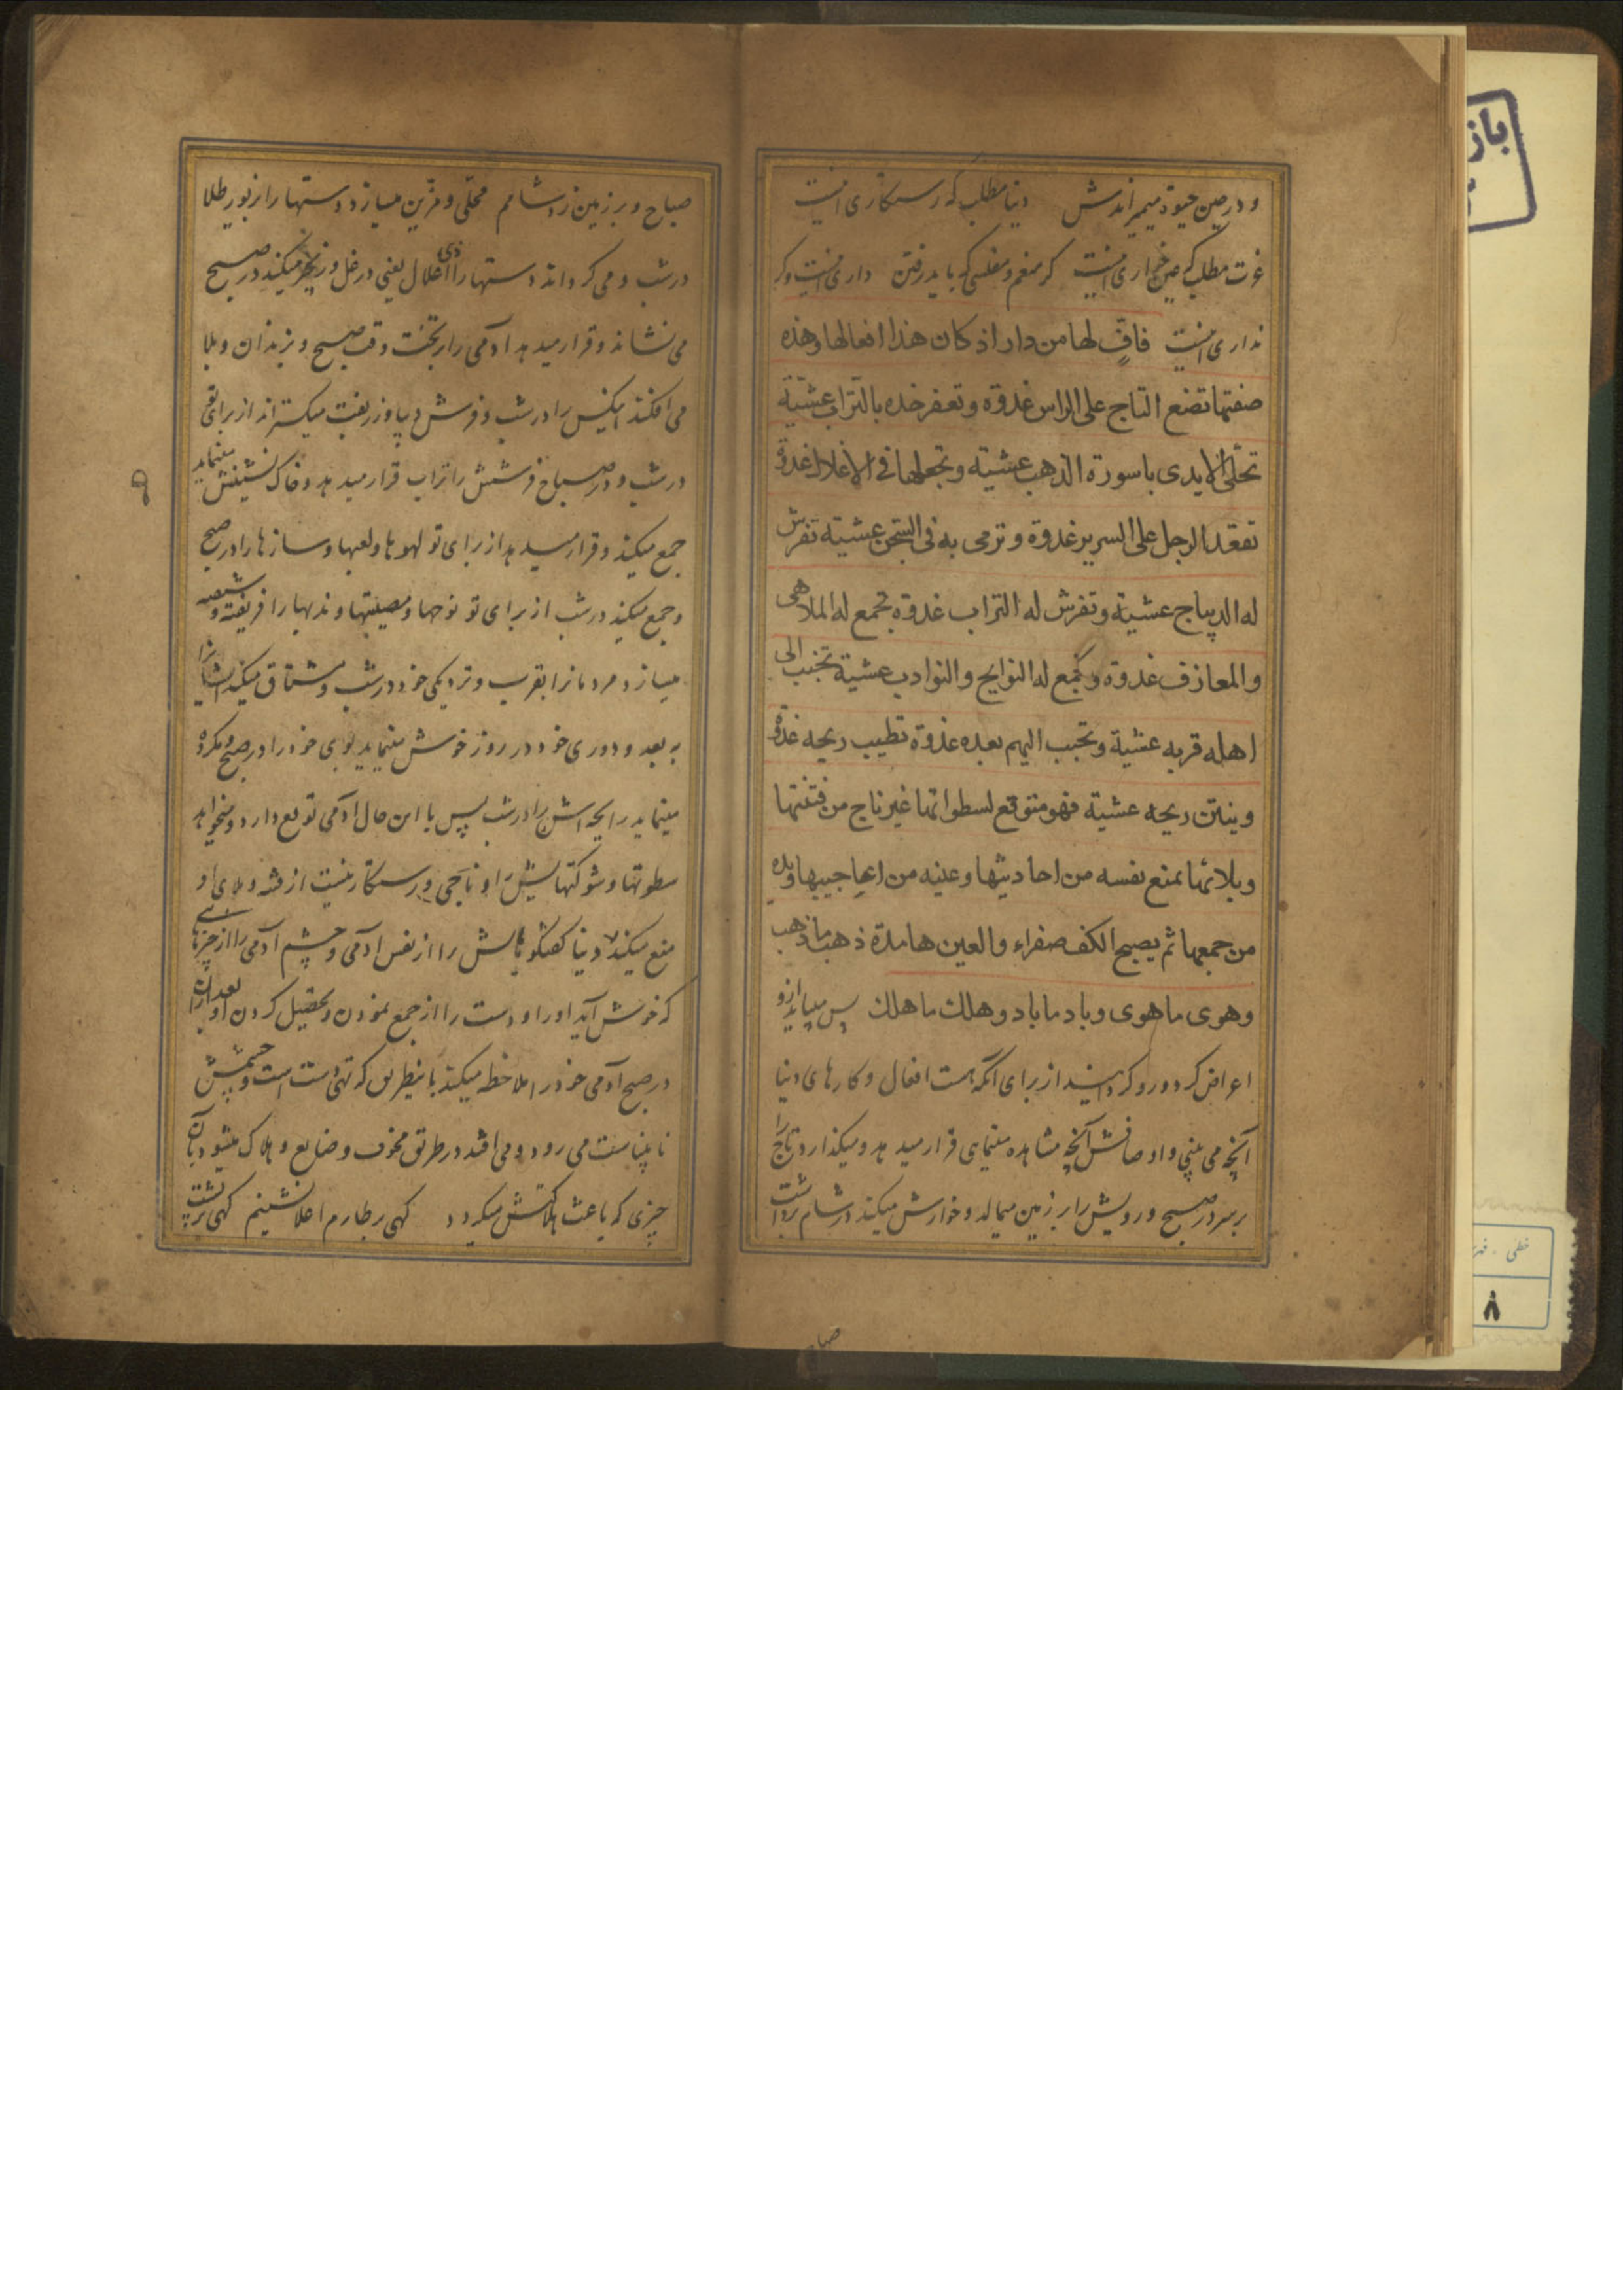 و در عین حیوة میمیراندش دنیا مطلب که رستکاری اینست
عزت مطلب که عین خواری اینست کر منعم و مفلسی که باید رفتن داری اینست و کر
نداری اینست فافٍ لها من دار اذ کان هذا افعالها و هذه
صفتها تضع التاج علی الراس غدوة و تعفر خده بالتراب عشیة
تحلّی الایدی باسورة الذهب عشیته و تجعلها فی الاغلال غدوة
تقعد الرجل علی السریر غدوة و ترمی به فی السّجن عشیته تفرش
له الدیباج عشیة و تفرش له التراب غدوة تجمع له الملاهی
و المعازف غدوة و تجمع له النوایح و النوادب عشیة تحبب الی
اهله قربه عشیة و تحبب الیهم بعده غدوة تطیب ریحه غدوة
و ینتن ریحه عشیة فهو متوقع لسطواتها غیر ناج من فتنتها
و بلائها تمنع نفسه من احادیثها و عینه من اعاجیبها و یده
من جمعها ثم یصبح الکف صفراء و العین هامدة ذهب ما ذهب
و هوی ما هوی و باد ما باد و هلك ما هلك پس میباید ازو
اعراض کرد و رو کردانید از برای آنکه هست افعال و کارهای دنیا
آنچه می بینی و اوصافش آنچه مشاهده مینمایی قرار میدهد و میکذارد تاج را
بر سر در صبح و رویش را بر زمین میمالد و خوارش میکند در شام برداشت
صباح و بر زمین زد شامم محلّی و مزین میسازد دستها را بزیور طلا
در شب و می کرداند دستها را ذی اغلال یعنی در غل و زنجیر میکند در صبح
می نشاند و قرار میدهد آدمی را بر تخت وقت صبح و بزندان و بلا
می افکند اینکس را در شب و فرش دیبا و زربفت میکستراند از برای تو
در شب و در صباح فرشش را تراب قرار میدهد و خاک نشینش مینماید
جمع میکند و قرار میدهد از برای تو لهوها و لعبها و سازها را در صبح
و جمع میکند در شب از برای تو نوحها و مصیبتها و ندبها را فریفته و شیفته
میسازد مردمانرا بقرب و نزدیکی خود در شب و مشتاق میکند ایشانرا
به بعد و دوری خود در روز خوش مینماید بوی خود را در صبح و مکروه
مینماید رایحه اش را در شب پس با این حال آدمی توقع دارد و میخواهد
سطوتها و شوکتهایش را و ناجی و رستکار نیست از فتنه و بلای او
منع میکند دنیا کفتکوهایش را از نفس آدمی و چشم آدمی را از چیزهایی
که خوش آید او را و دست را از جمع نمودن و تحصیل کردن او بعد از آن
در صبح آدمی خود را ملاحظه میکند باینطریق که تهی دست است و چشمش
نابیناست می رود و می افتد در طریق مخوف و ضایع و هلاک میشود بآن
چیزی که باعث هلاکتش میکردد کهی بر طارم اعلا نشینم کهی بر پشت
صباح
باز
خطی - فهر
۸